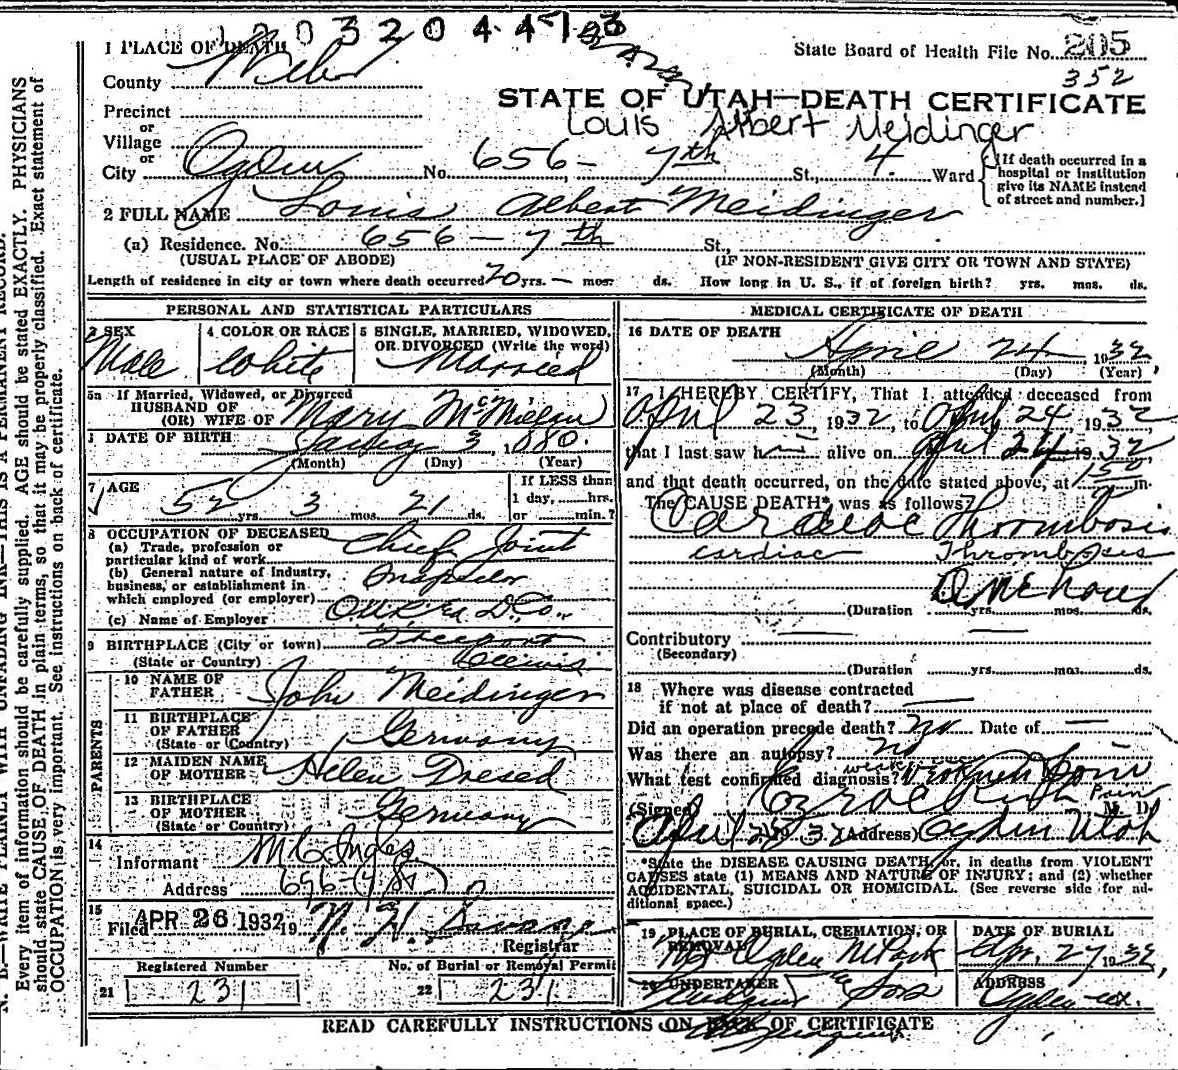 1 PLACE OF DEATH
State Board of Health File No. 205
352
County Weber
STATE OF UTAH—DEATH CERTIFICATE
Precinct
or
Village
Louis Albert Meidinger
or
City Ogden No. 656 - 7th St., 4 Ward
[If death occurred in a
hospital or institution
give its NAME instead
of street and number.]
2 FULL NAME Louis Albert Meidinger
(a) Residence. No. 656 - 7th St.,
(USUAL PLACE OF ABODE) (IF NON-RESIDENT GIVE CITY OR TOWN AND STATE)
Length of residence in city or town where death occurred 20 yrs. — mos. ds. How long in U. S., if of foreign birth? yrs. mos. ds.
PERSONAL AND STATISTICAL PARTICULARS
3 SEX
Male
4 COLOR OR RACE
White
5 SINGLE, MARRIED, WIDOWED,
OR DIVORCED (Write the word)
Married
5a If Married, Widowed, or Divorced
HUSBAND OF
(OR) WIFE OF Mary McMillen
DATE OF BIRTH 3, 1880.
(Month) (Day) (Year)
7 AGE
52 yrs 3 mos. 21 ds.
If LESS than
1 day, hrs.
or min.?
8 OCCUPATION OF DECEASED
(a) Trade, profession or
particular kind of work Chief Joint
(b) General nature of industry,
business, or establishment in
which employed (or employer) Inspector
(c) Name of Employer
9 BIRTHPLACE (City or town) Freeport
(State or Country) Illinois
PARENTS
10 NAME OF
FATHER John Meidinger
11 BIRTHPLACE
OF FATHER
(State or Country) Germany
12 MAIDEN NAME
OF MOTHER Helen Dresed
13 BIRTHPLACE
OF MOTHER
(State or Country) Germany
14
Informant
Address
15
Filed APR 26 1932 19
Registrar
Registered Number
21 231
No. of Burial or Removal Permit
22 231
MEDICAL CERTIFICATE OF DEATH
16 DATE OF DEATH
April 24, 1932
(Month) (Day) (Year)
17 I HEREBY CERTIFY, That I attended deceased from
April 23, 1932, to April 24, 1932
that I last saw h alive on April 24 1932
and that death occurred, on the date stated above, at 150 m.
The CAUSE DEATH* was as follows?
Cardiac Thrombosis
cardiac Thrombosis
One hour
(Duration yrs. mos. ds.
Contributory
(Secondary)
(Duration yrs. mos. ds.
18 Where was disease contracted
if not at place of death?
Did an operation precede death? No Date of —
Was there an autopsy? no
What test confirmed diagnosis?
Pain
(Signed) M. D.
April 1932 (Address) Ogden Utah
*State the DISEASE CAUSING DEATH, or, in deaths from VIOLENT
CAUSES state (1) MEANS AND NATURE OF INJURY; and (2) whether
ACCIDENTAL, SUICIDAL OR HOMICIDAL. (See reverse side for ad-
ditional space.)
19 PLACE OF BURIAL, CREMATION, OR
REMOVAL
Ogden
DATE OF BURIAL
Apr. 27 1932,
20 UNDERTAKER
Sons
ADDRESS
Ogden
READ CAREFULLY INSTRUCTIONS ON BACK OF CERTIFICATE
N. B.—WRITE PLAINLY WITH UNFADING INK—THIS IS A PERMANENT RECORD.
Every item of information should be carefully supplied. AGE should be stated EXACTLY. PHYSICIANS
should state CAUSE OF DEATH in plain terms, so that it may be properly classified. Exact statement of
OCCUPATION is very important. See instructions on back of certificate.